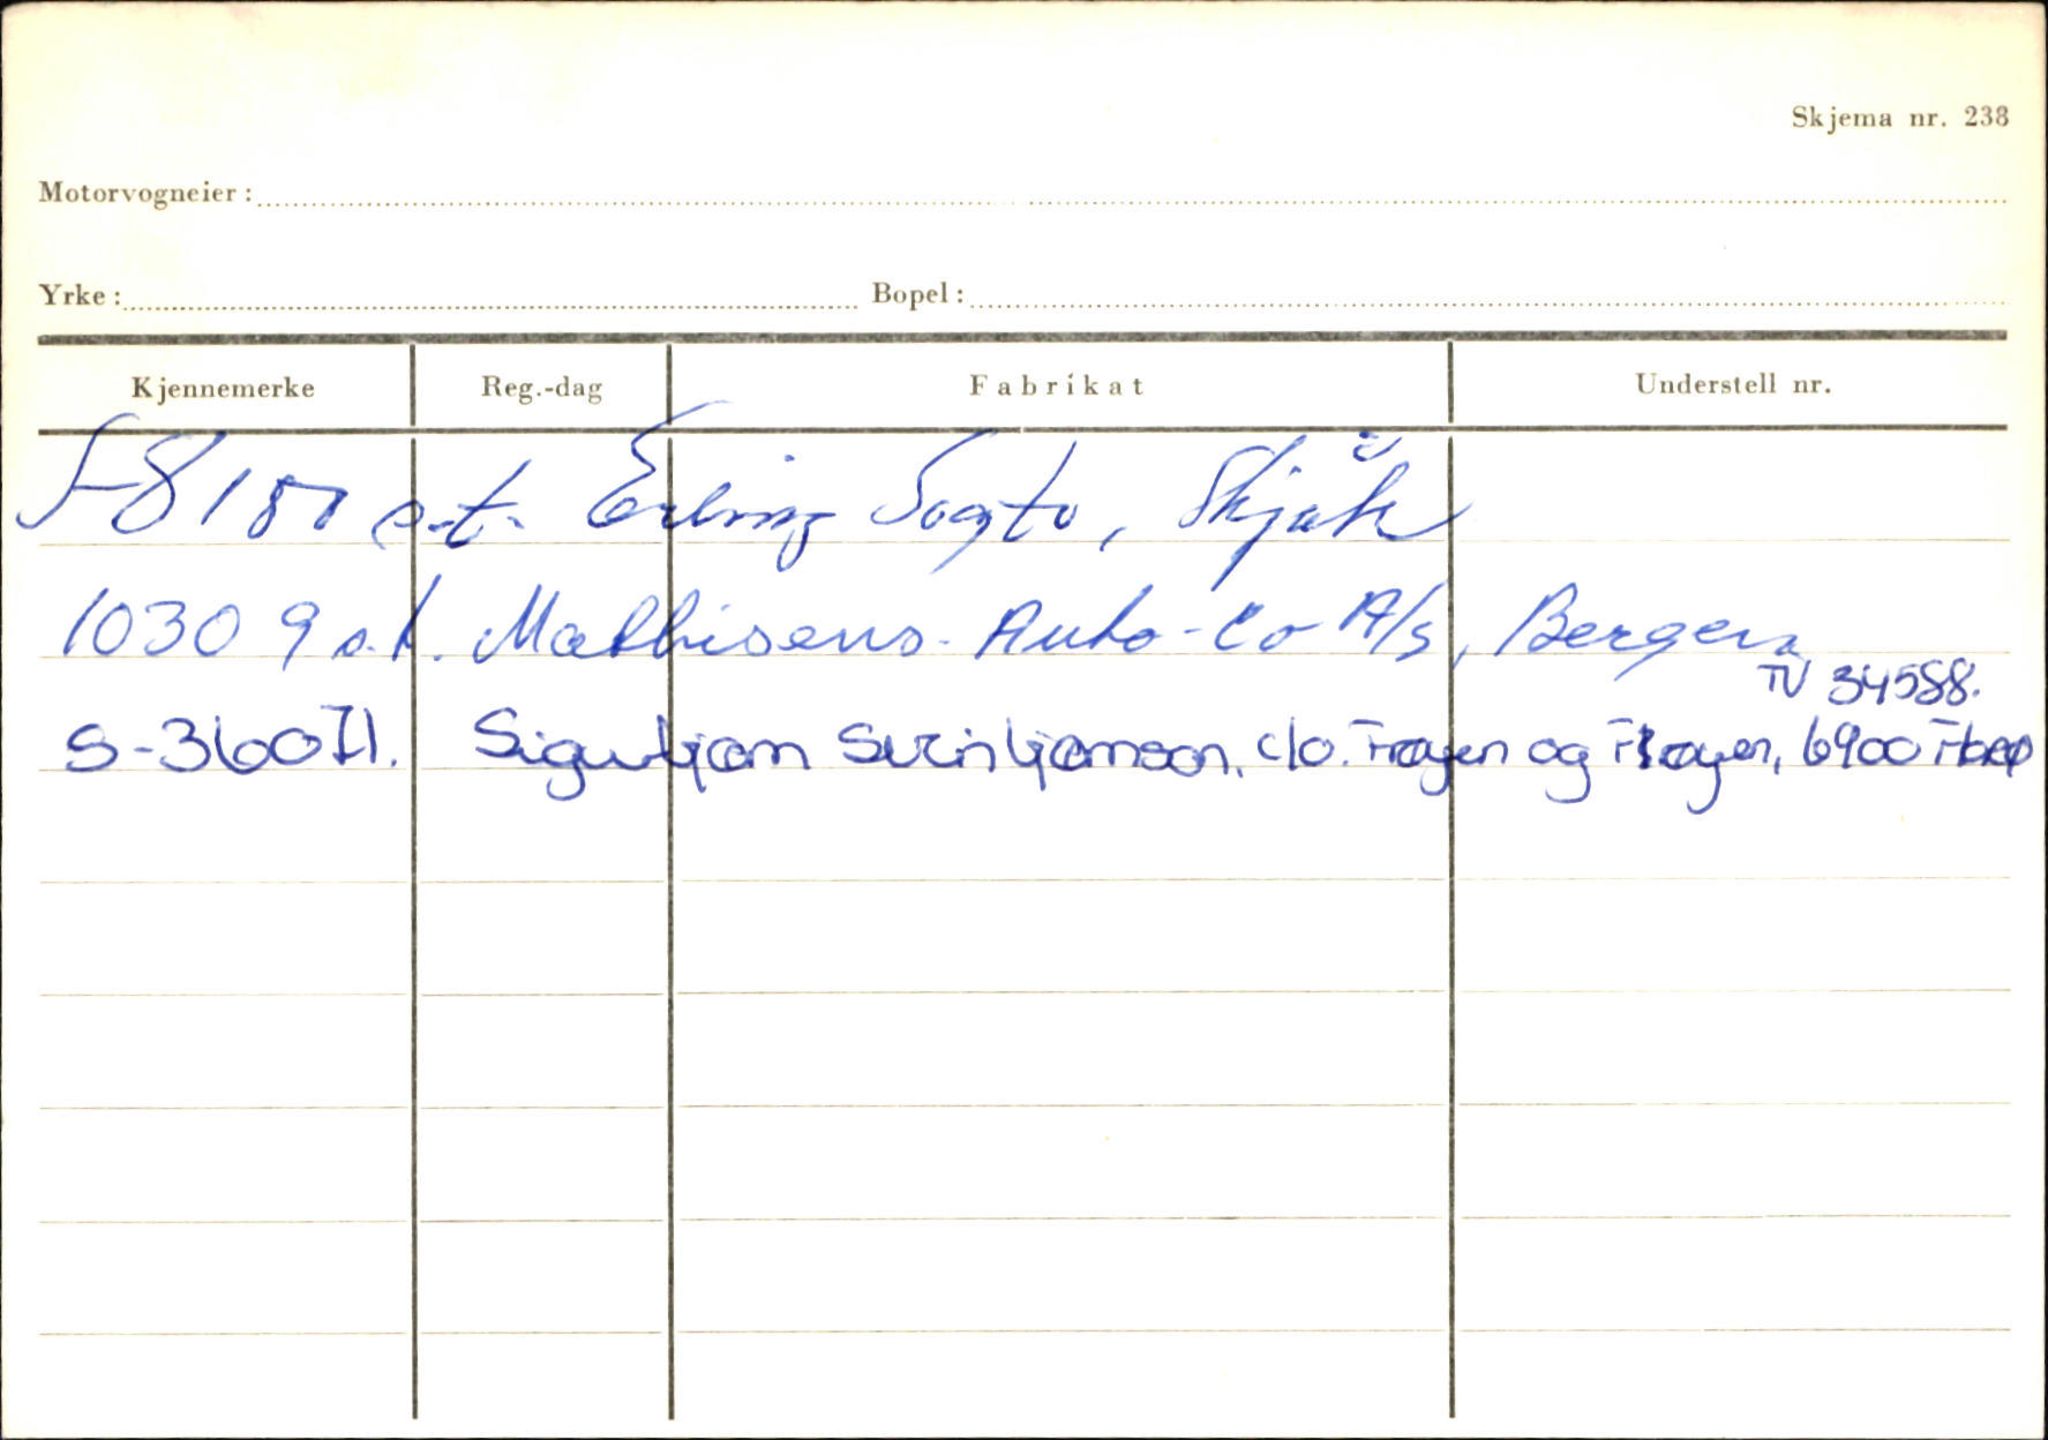 Skjema nr. 238
Motorvogneier:
Yrke: Bopel:
Kjennemerke Reg.-dag Fabrikat Understell nr.
s.t. Erling Sogto, Skjåk
10309 s.t. Mathisens Auto-Co A/S, Bergen
TV 34588.
S-36071. c/o. Frøyen og Frøyen, 6900 Florø